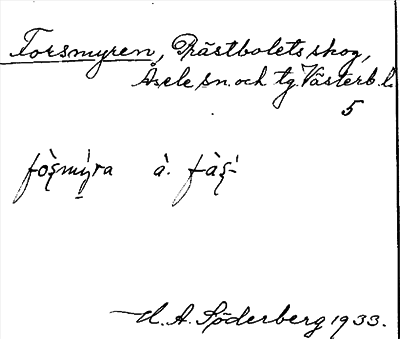 Forsmyren, Prästbolets skog,
Åsele sn. och tg. Västerb. l.
5
fò̀ʂmýra à. fàʂ-́
H. A. Söderberg 1933.